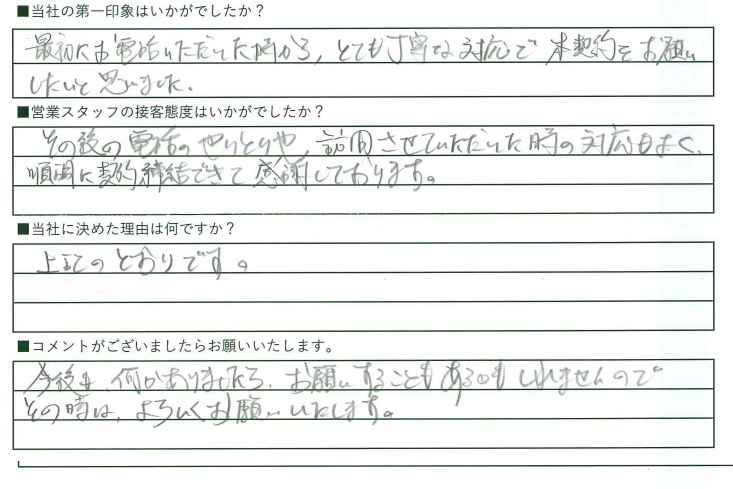 ■当社の第一印象はいかがでしたか？
最初にお電話いただいた時から、とても丁寧な対応で本契約をお願い
したいと思いました。
■営業スタッフの接客態度はいかがでしたか？
その後の電話のやりとりや、訪問させていただいた時の対応もよく、
順調に契約締結できて感謝しております。
■当社に決めた理由は何ですか？
上記のとおりです。
■コメントがございましたらお願いいたします。
今後も、何かありましたら、お願いすることもあるかもしれませんので
その時は、よろしくお願いいたします。